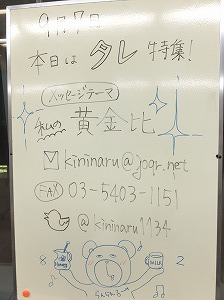 9月7日
本日は タレ 特集!
メッセージテーマ
私の 黄金比
kininaru@joqr.net
FAX 03-5403-1151
@kininaru1134
8 2
Honey MILK